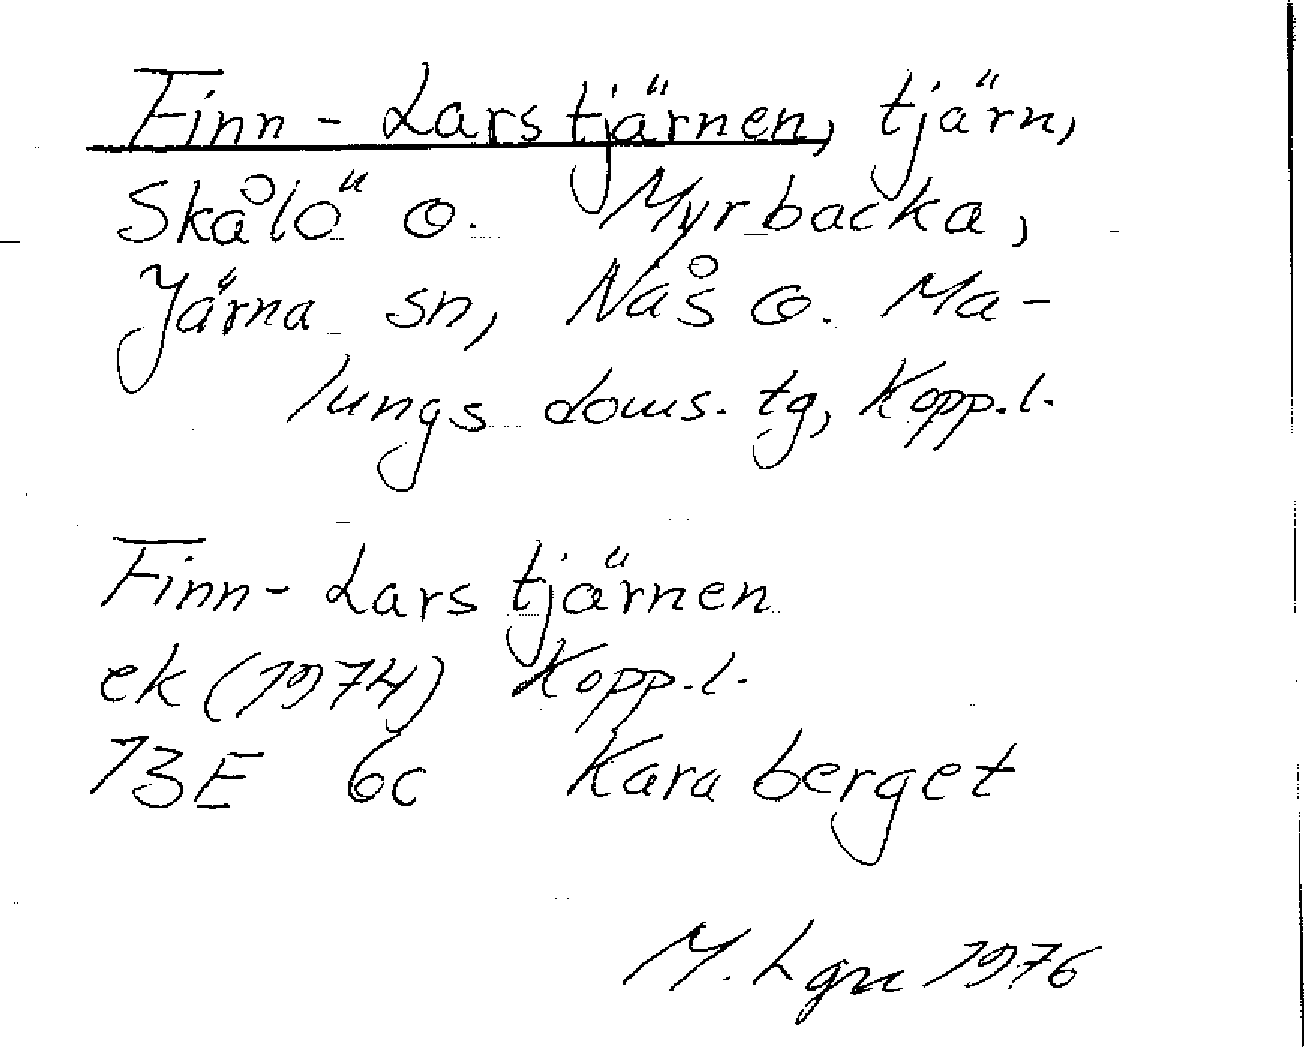 Finn-Larstjärnen, tjärn,
Skålö o. Myrbacka,
Järna sn, Nås o. Ma-
lungs doms. tg, Kopp.l.
Finn-Larstjärnen
ek (1974) Kopp.l.
13E 6c Karaberget
M. Lgn 1976